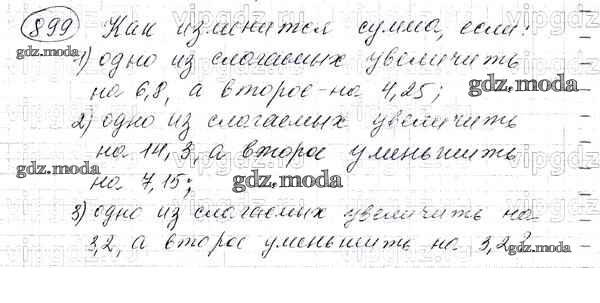 899 Как изменится сумма, если:
1) одно из слагаемых увеличить
на 6,8, а второе - на 4,25;
2) одно из слагаемых увеличить
на 14,3, а второе уменьшить
на 7,15;
3) одно из слагаемых увеличить на
3,2, а второе уменьшить на 3,2?
gdz.moda
gdz.moda
gdz.moda
gdz.moda
gdz.moda
gdz.moda